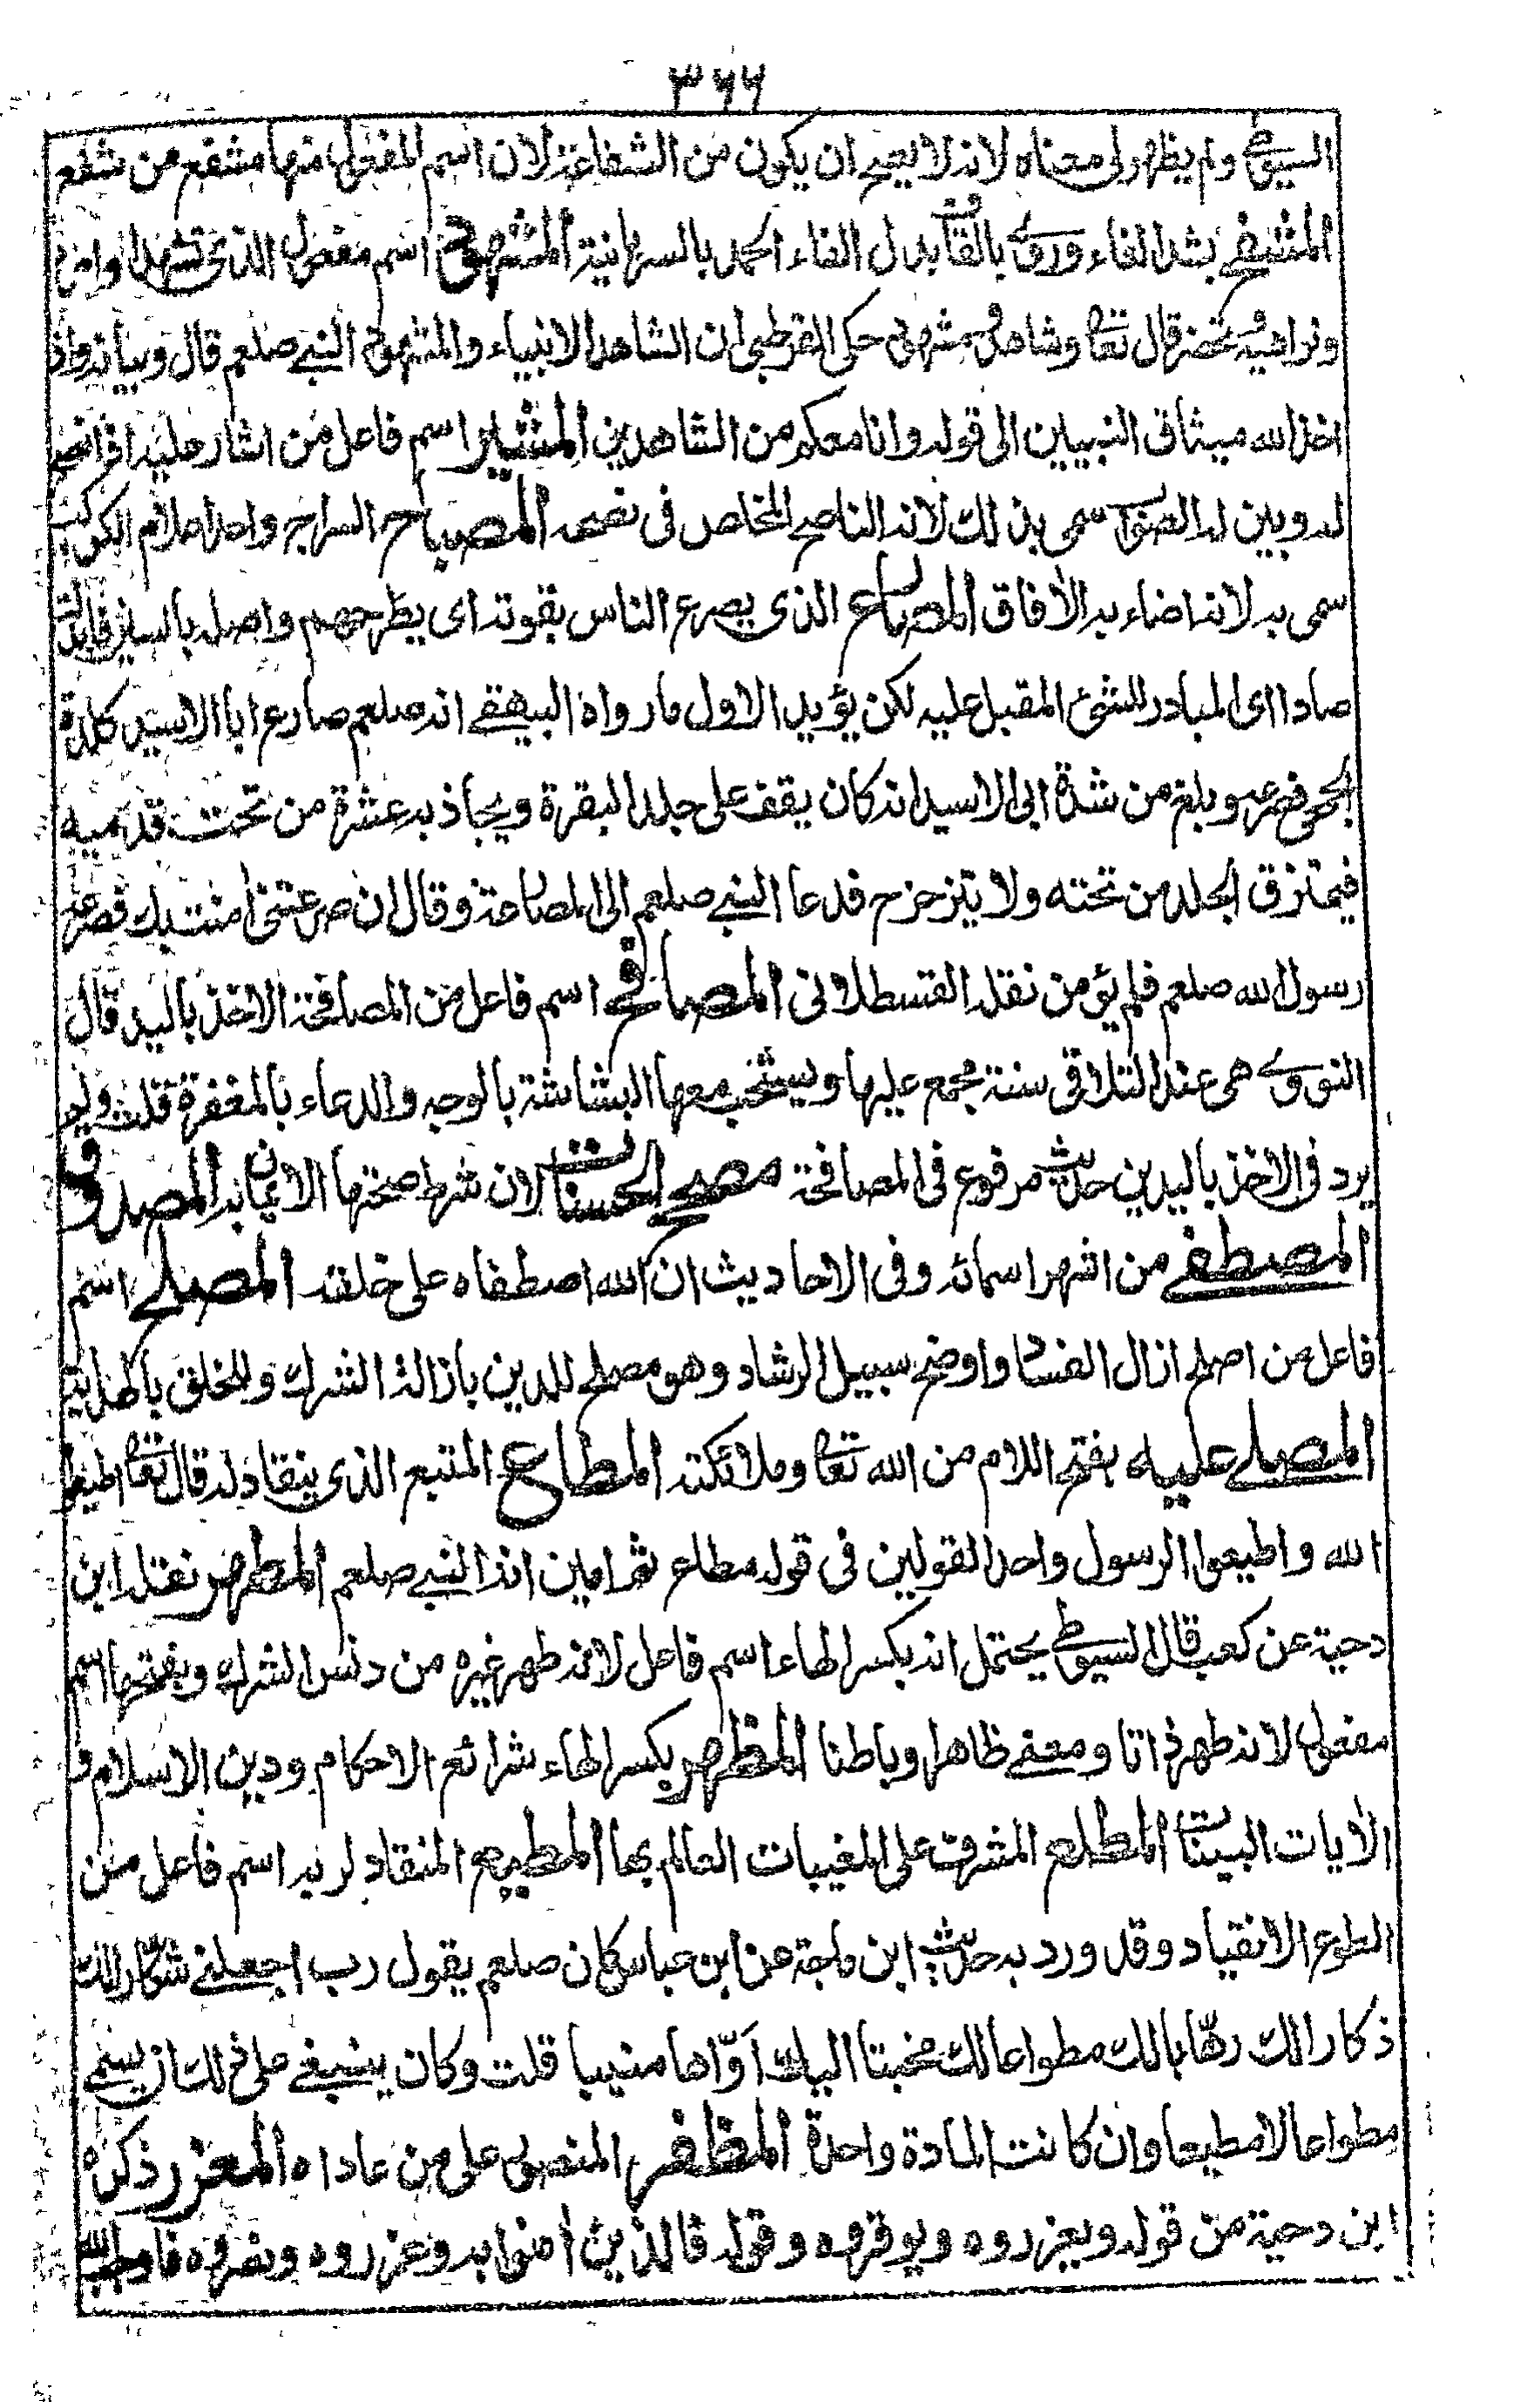 ٣٦٦
السيوطي ولم يظهر لي معناه لانه لا يصح ان يكون من الشفاعة لان اسم المفعول منها مشفع من شفع
المشفح بشد الفاء وروى بالقاف بدل الفاء الحمد بالسريانية المشهود اسم مفعول الذي تشهد اوامره
ونواهيه تحضر قال تعا وشاهد ومشهود حكى القرطبي ان الشاهد الانبياء والمشهود النبي صلعم قال وبيانه واذ
اخذ الله ميثاق النبيين الى قوله وانا معكم من الشاهدين المشير اسم فاعل من اشار عليه اذا نصح
له وبين له الصواب سمى بذلك لانه الناصح المخلص في نصحه المصباح السراج واحد اعلام الكواكب
سمى به لانه اضاء به الافاق المصارع الذي يصرع الناس بقوته اى يطرحهم واصله بالسين فابدلت
صادا اى المبادر للشئ المقبل عليه لكن يؤيد الاول ما رواه البيهقي انه صلعم صارع ابا الاسيد كلدة
الجمحى فصرعه وبلغ من شدة ابى الاسيد انه كان يقف على جلد البقرة ويجاذبه عشرة من تحت قدميه
فيمتزق الجلد من تحته ولا يتزحزح فدعا النبي صلعم الى المصارعة وقال ان صرعتنى امنت بك فصرعه
رسول الله صلعم فلم يؤمن نقله القسطلانى المصافح اسم فاعل من المصافحة الاخذ باليد قال
النووى هى عند التلاقى سنة مجمع عليها ويستحب معها البشاشة بالوجه والدعاء بالمغفرة قلت ولم
يرد فى الاخذ باليدين حديث مرفوع فى المصافحة مصحح الحسنات لان شرط صحتها الايمان به المصدوق
المصطفى من اشهر اسمائه وفى الاحاديث ان الله اصطفاه على خلقه المصلح اسم
فاعل من اصلح ازال الفساد واوضح سبيل الرشاد وهو مصلح للدين بازالة الشرك وللخلق بالهداية
المصلى عليه بفتح اللام من الله تعا وملائكته المطاع المتبع الذى ينقاد له قال تعا اطيعوا
الله واطيعوا الرسول واحد القولين فى قوله مطاع ثم امين انه النبي صلعم المطهر نقله ابن
دحية عن كعب قال السيوطى يحتمل انه بكسر الهاء اسم فاعل لانه طهر غيره من دنس الشرك وبفتحها اسم
مفعول لانه طهر ذاتا ومعنى ظاهرا وباطنا المظهر بكسر الهاء شرائع الاحكام ودين الاسلام و
الايات البينات المطلع المشرف على المغيبات العالم بها المطيع المنقاد لربه اسم فاعل من
الطوع الانقياد وقد ورد به حديث ابن ماجة عن ابن عباس كان صلعم يقول رب اجعلنى شكارا لك
ذكارا لك رهابا لك مطواعا لك مخبتا اليك اوّاها منيبا قلت وكان ينبغى على ذلك ان يسمى
مطواعا لا مطيعا وان كانت المادة واحدة المظفر المنصور على من عاداه المعزر ذكره
ابن دحية من قوله ويعزروه ويوقروه وقوله فالذين امنوا به وعزروه ونصروه فاوجب الله